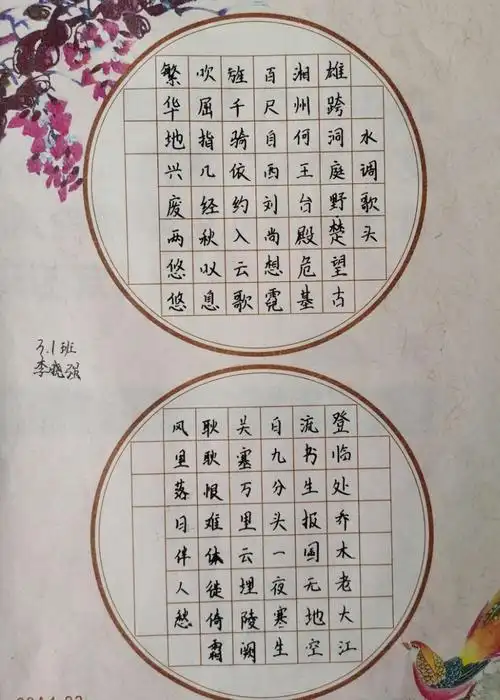 水调歌头
雄跨洞庭野楚望古
湘州何王台殿危基
百尺自西刘尚想霓
旌千骑依约入云歌
吹屈指几经秋叹息
繁华地兴废两悠悠
登临处乔木老大江
流书生报国无地空
白九分头一夜寒生
关塞万里云埋陵阙
耿耿恨难休徙倚霜
风里落日伴人愁
3.1班
李晓强